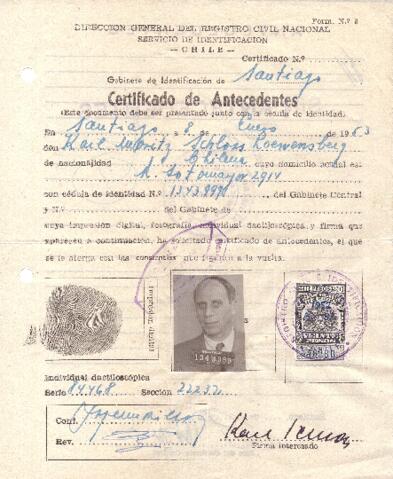 Form. N.º 2
DIRECCION GENERAL DEL REGISTRO CIVIL NACIONAL
SERVICIO DE IDENTIFICACION
— CHILE —
Certificado N.º
Gabinete de Identificación de Santiago
Certificado de Antecedentes
(Este documento debe ser presentado junto con la cédula de identidad)
En Santiago 8 de Enero de 1963
don Karl Moritz Schloss Loewensberg
de nacionalidad Chilena cuyo domicilio actual es:
Sotomayor 2914
con cédula de identidad N.º del Gabinete Central
y N.º del Gabinete de
cuya impresión digital, fotografía, individual dactiloscópica y firma que
aparecen a continuación, ha solicitado certificado de antecedentes, el que
se le otorga con las constancias que a la vuelta.
Impresión digital
Individual dactiloscópica
Serie Sección 22232
Conf.
Rev.
Karl
Firma Interesado